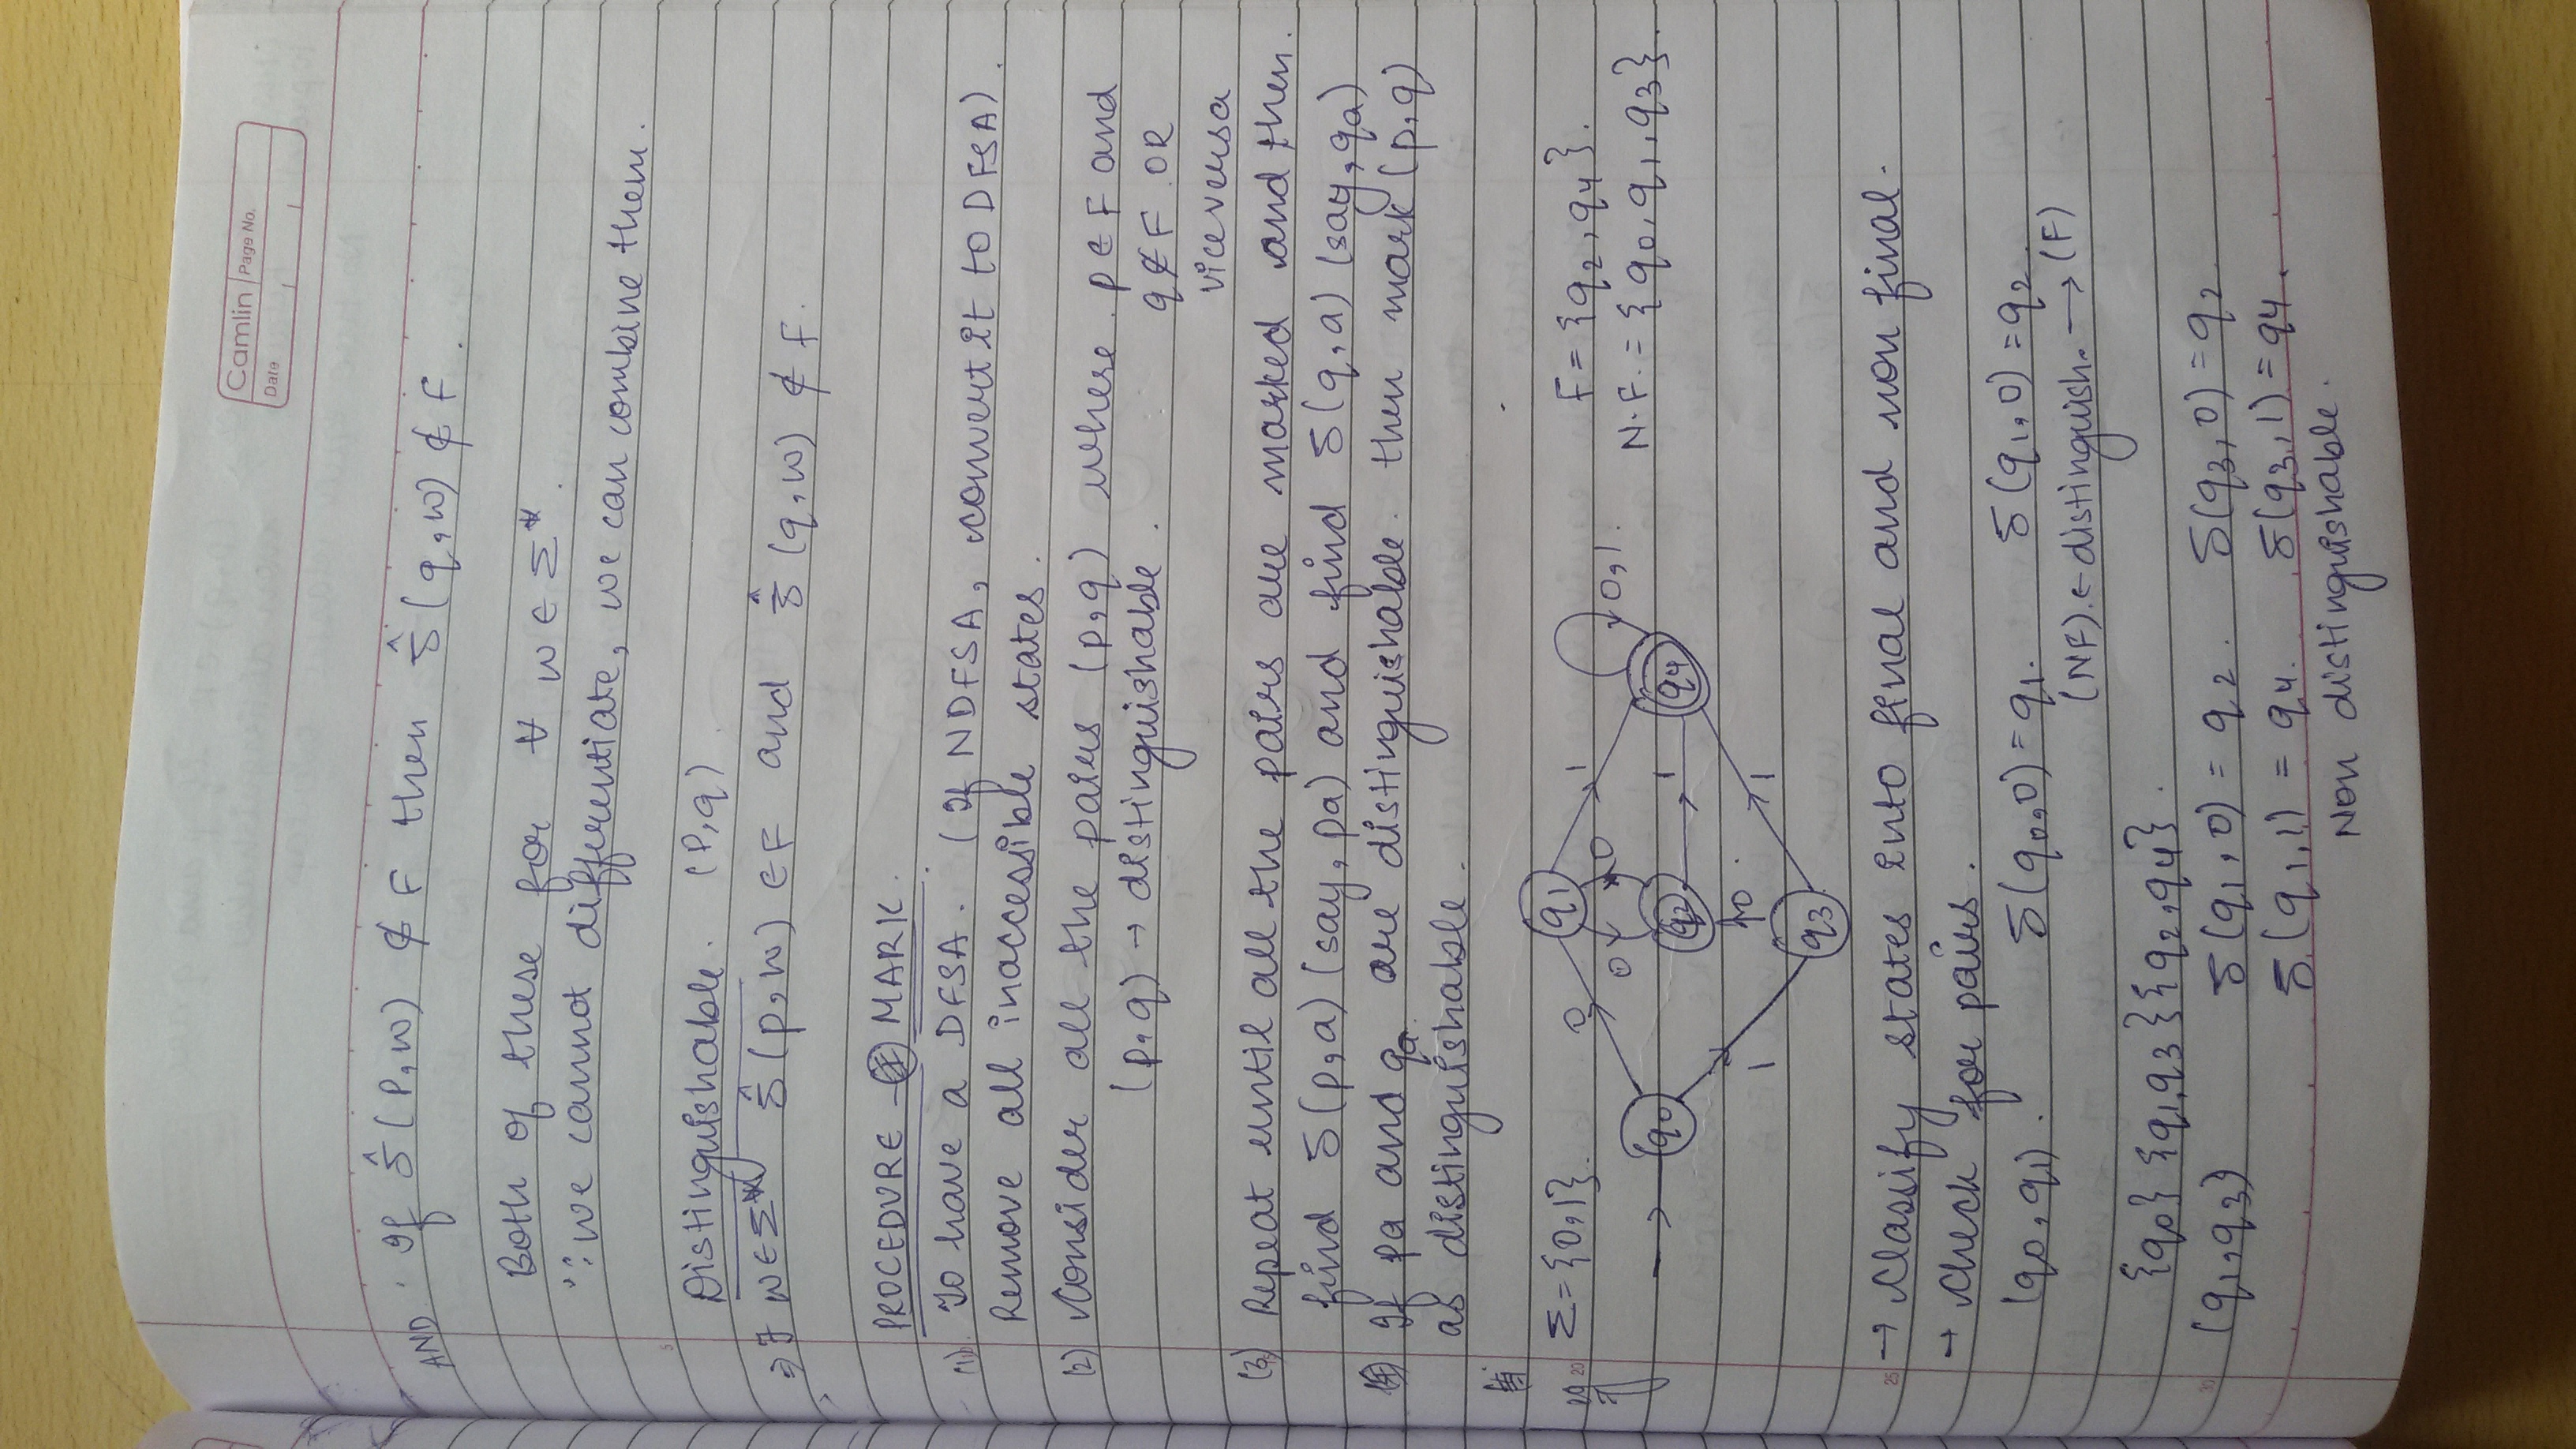 Camlin Page No.
Date
AND If δ̂(P,w) ∉ F then δ̂(q,w) ∉ F.
Both of these for ∀ w ∈ Σ*.
∵ we cannot differentiate, we can combine them.
Distinguishable. (P,q)
⇒ ∃ w∈Σ* δ̂(p,w) ∈F and δ̂(q,w) ∉ F.
PROCEDURE - MARK.
(1) To have a DFSA. (If NDFSA, convert it to DFSA).
Remove all inaccessible states.
(2) Consider all the pairs (p,q) where p∈F and
(p,q) → distinguishable. q∉F OR
viceversa
(3) Repeat until all the pairs are marked and then.
find δ(p,a) (say, pa) and find δ(q,a) (say, qa)
If pa and qa are distinguishable. then mark (p,q)
as distinguishable.
eg Σ={0,1}. F = {q2, q4}.
N.F. = {q0, q1, q3}.
q1
0 1
0 0 0,1.
q0 q2 1 q4
0
1 1
q3
→ Classify states into final and non final.
→ Check for pairs.
(q0, q1). δ(q0,0)=q1. δ(q1,0)=q2.
(NF). ← distinguish. → (F)
{q0} {q1,q3} {q2,q4}.
(q1,q3) δ(q1,0) = q2. δ(q3,0)=q2.
δ(q1,1) = q4. δ(q3,1)=q4.
Non distinguishable.